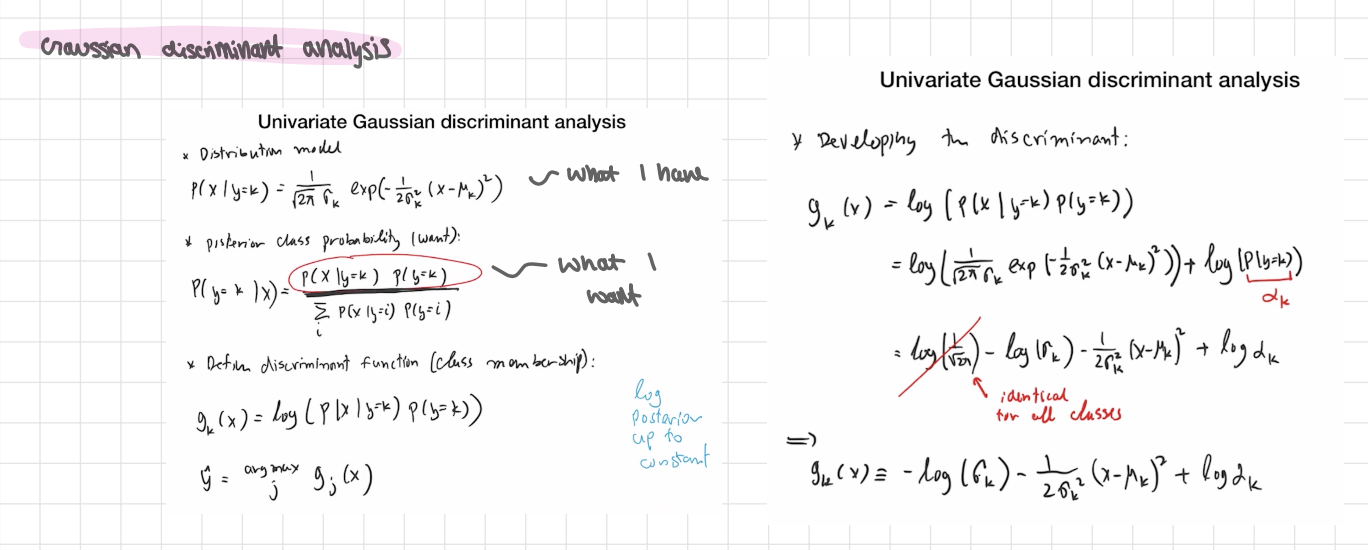 Gaussian discriminant analysis
Univariate Gaussian discriminant analysis
* Distribution model
P(x|y=k) = 1/(√2π σ_k) exp(-1/(2σ_k²) (x-μ_k)²)
what I have
* Posterior class probability (want):
P(y=k|x) = P(x|y=k) P(y=k) / Σ_i P(x|y=i) P(y=i)
what I
want
* Define discriminant function (class membership):
g_k(x) = log(P(x|y=k) P(y=k))
log
posterior
up to
constant
ŷ = argmax_j g_j(x)
Univariate Gaussian discriminant analysis
* Developing the discriminant:
g_k(x) = log(P(x|y=k) P(y=k))
= log(1/(√2π σ_k) exp(-1/(2σ_k²) (x-μ_k)²)) + log(P(y=k))
α_k
= log(1/√2π) - log(σ_k) - 1/(2σ_k²) (x-μ_k)² + log α_k
identical
for all classes
⇒
g_k(x) ≡ -log(σ_k) - 1/(2σ_k²) (x-μ_k)² + log α_k